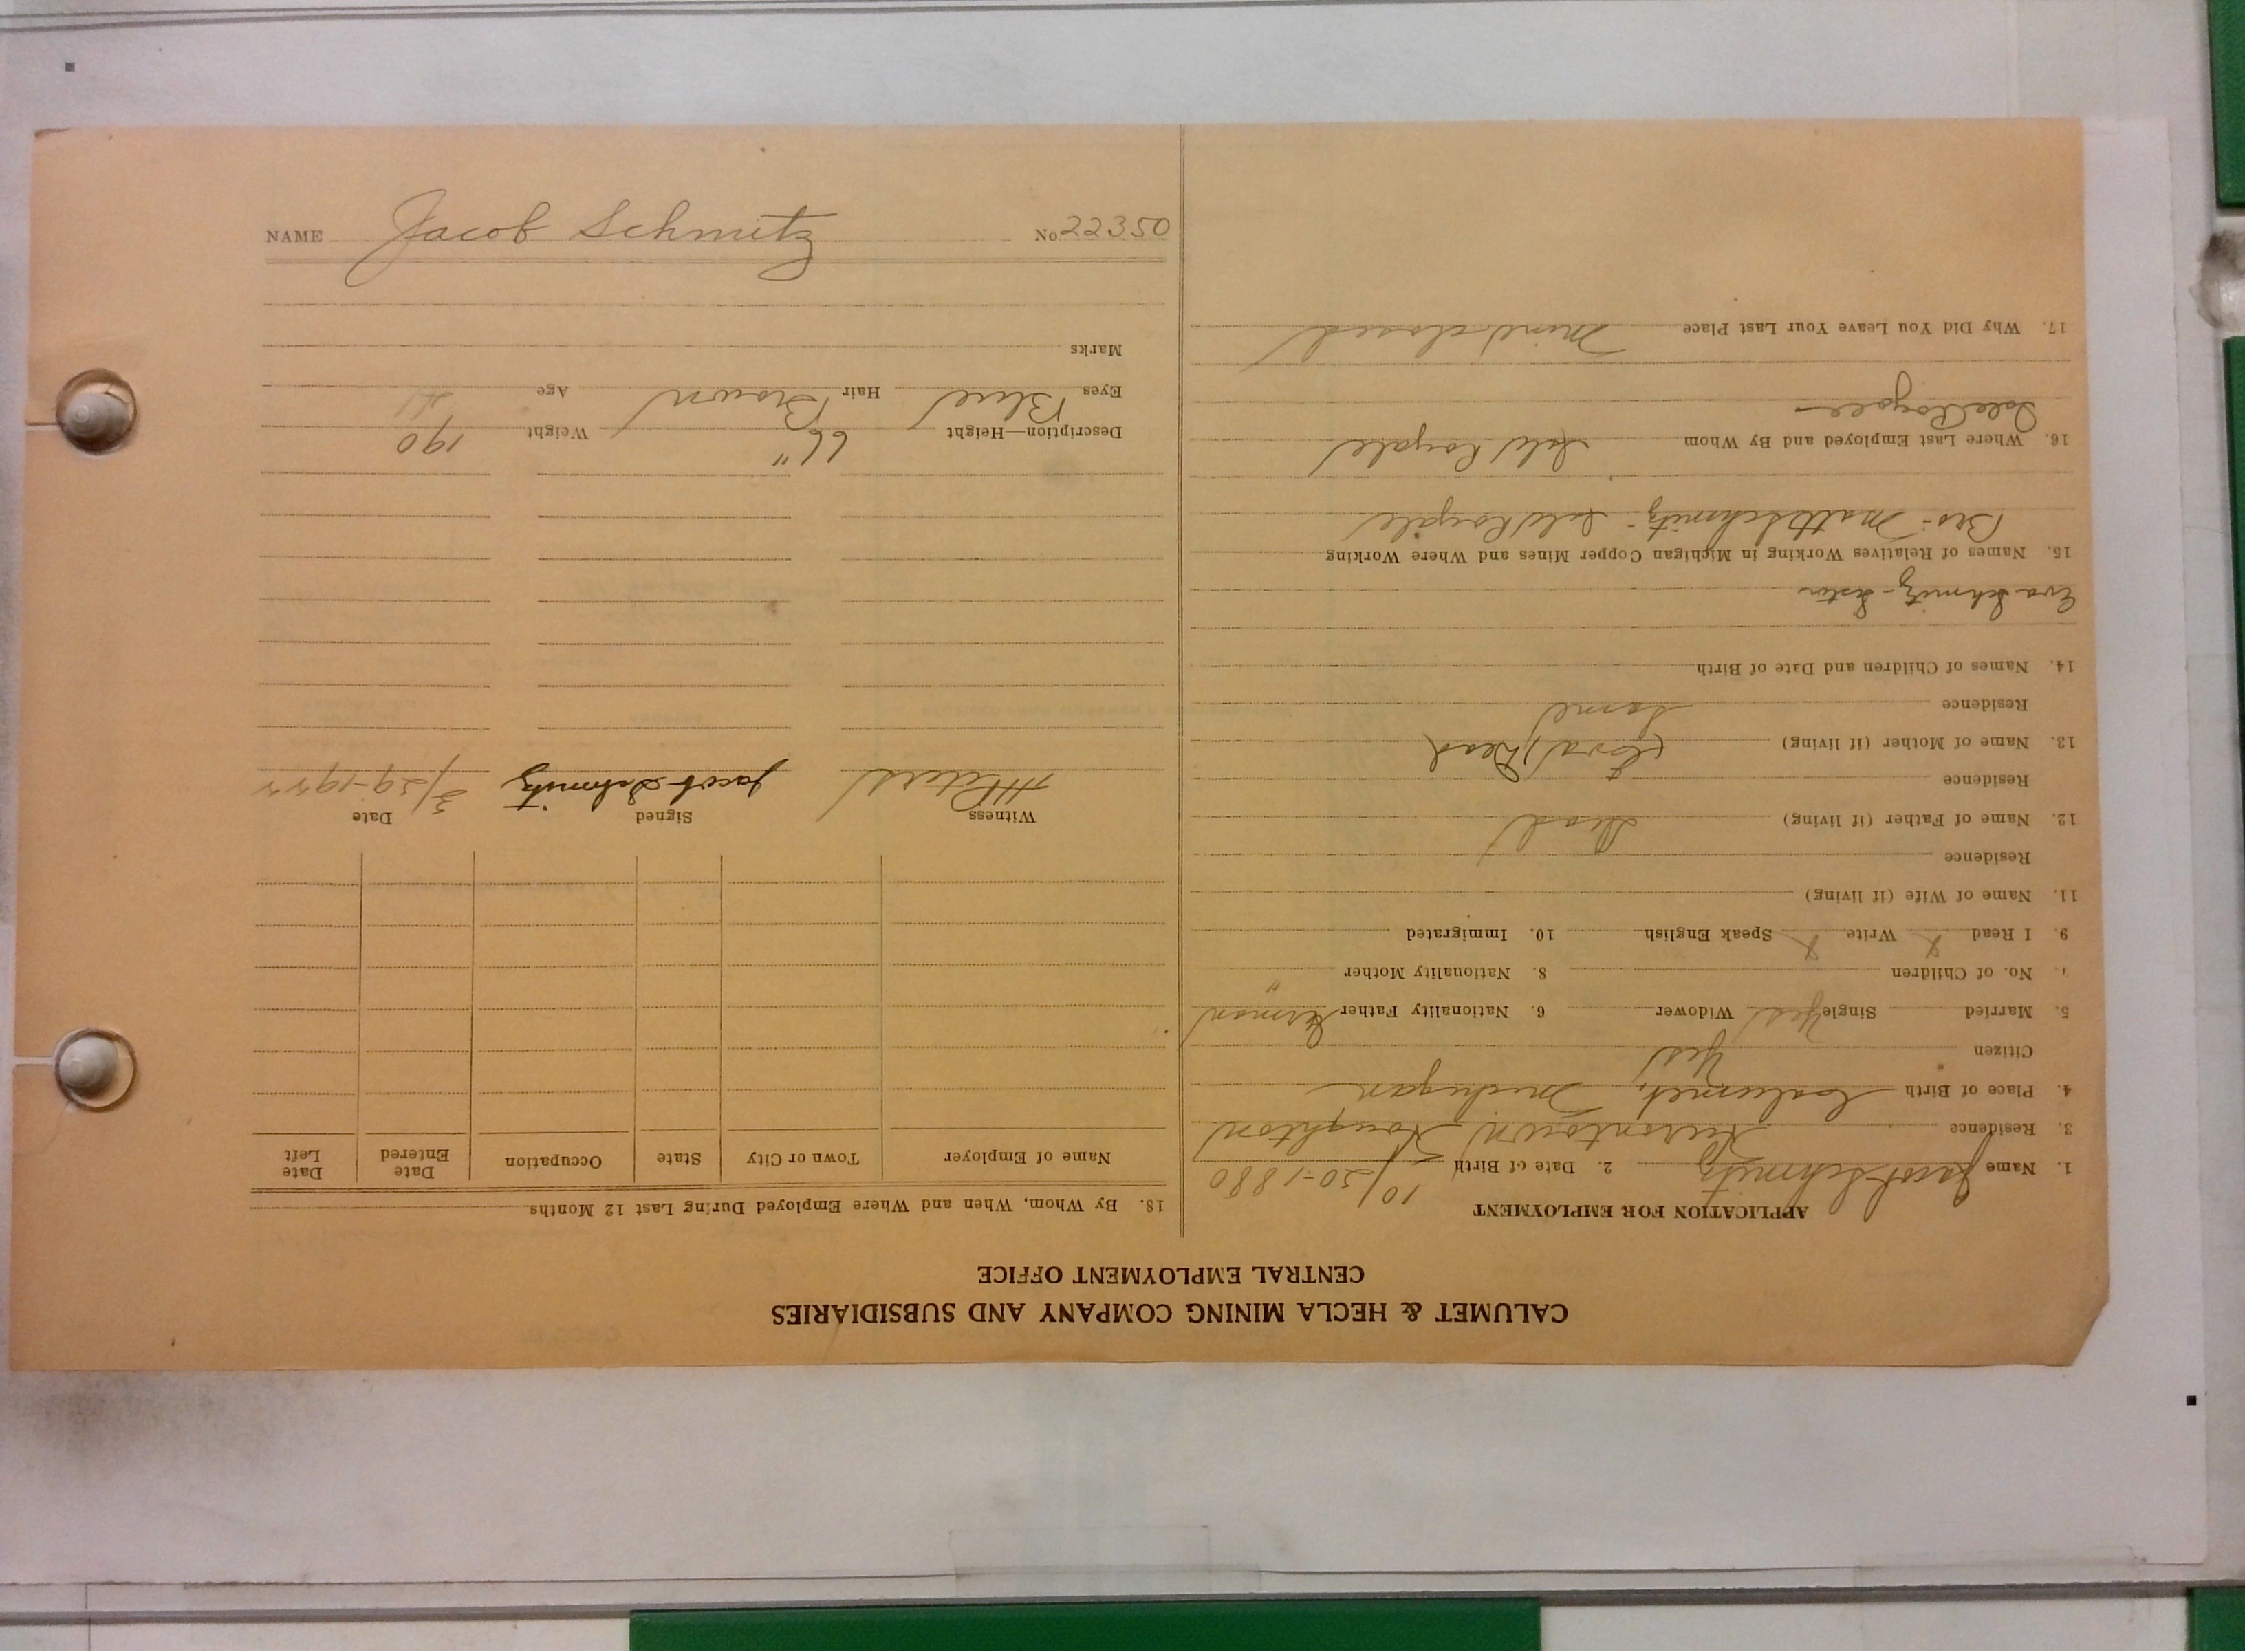 NAME Jacob Schmitz No. 22350
CALUMET & HECLA MINING COMPANY AND SUBSIDIARIES
CENTRAL EMPLOYMENT OFFICE
APPLICATION FOR EMPLOYMENT
1. Name Jacob Schmitz 2. Date of Birth 10/30-1880
3. Residence Hurontown Houghton
4. Place of Birth Calumet, Michigan
Citizen Yes
5. Married Single Yes Widower 6. Nationality Father German
7. No. of Children 8. Nationality Mother "
9. I Read X Write X Speak English 10. Immigrated
11. Name of Wife (if living)
Residence
12. Name of Father (if living) Dead
Residence
13. Name of Mother (if living) Dead
Residence Same
14. Names of Children and Date of Birth
Eva Schmitz - Sister
15. Names of Relatives Working in Michigan Copper Mines and Where Working
Bro - Matt Schmitz - Isle Royale
16. Where Last Employed and By Whom Isle Royale
Isle Royale
17. Why Did You Leave Your Last Place Mine closed
18. By Whom, When and Where Employed During Last 12 Months
Name of Employer Town or City State Occupation Date Entered Date Left
Witness Signed Date
Jacob Schmitz 3/29-1922
Description—Height 66" Weight 190
Eyes Blue Hair Brown Age 41
Marks